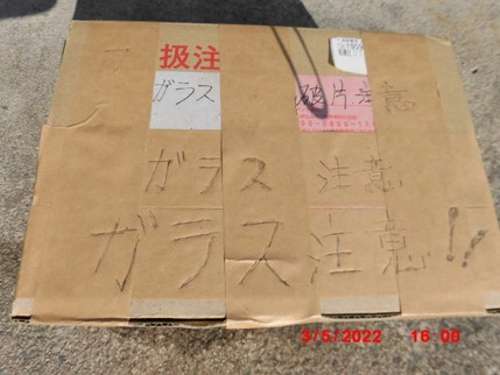 扱注
ガラス 破片注意
ガラス 注意
ガラス注意!!
3/5/2022 16:08